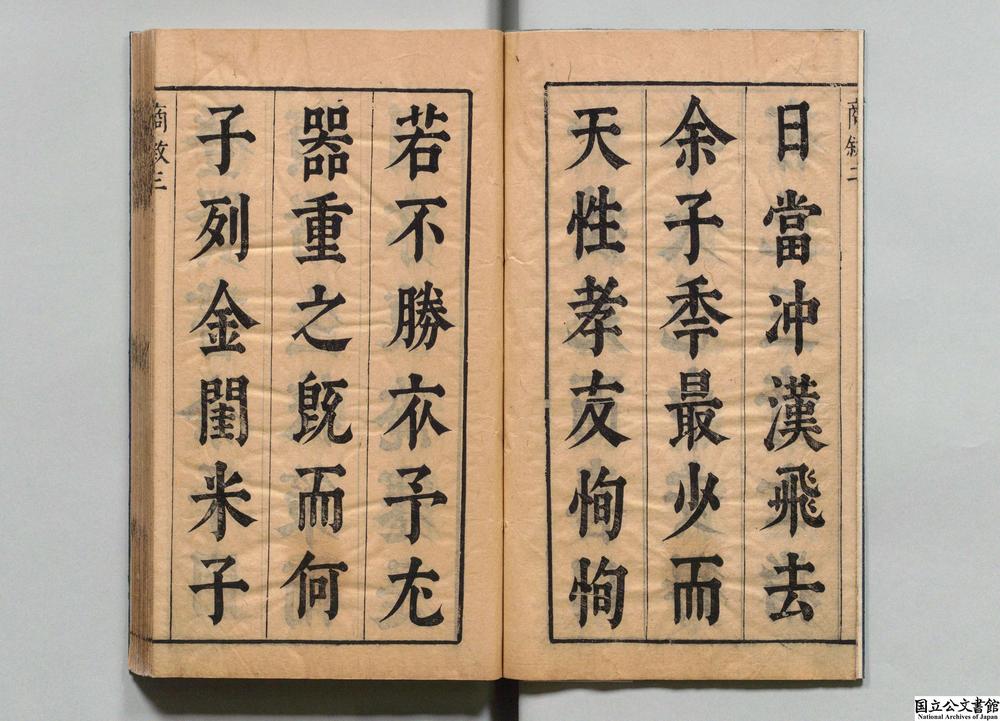 日當冲漢飛去
余子秊最少而
天性孝友恂恂
若不勝衣予尤
器重之既而何
子列金閨米子
商敘三
国立公文書館
National Archives of Japan